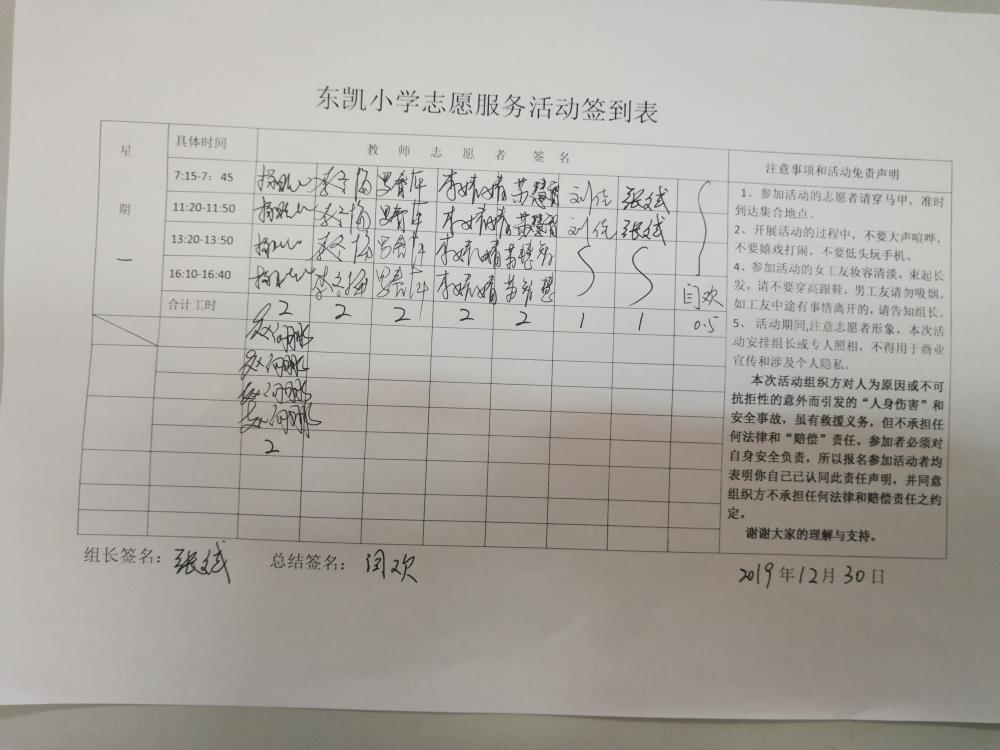 东凯小学志愿服务活动签到表
星期一
具体时间 教师志愿者签名 注意事项和活动免责声明
7:15-7:45 刘佳 张斌
11:20-11:50 刘佳 张斌
13:20-13:50
16:10-16:40 闫欢
合计工时 2 2 2 2 2 1 1 0.5
2
1、参加活动的志愿者请穿马甲,准时
到达集合地点。
2、开展活动的过程中,不要大声喧哗,
不要嬉戏打闹,不要低头玩手机。
4、参加活动的女工友妆容清淡,束起长
发,请不要穿高跟鞋,男工友请勿吸烟。
如工友中途有事情离开的,请告知组长。
5、 活动期间,注意志愿者形象,本次活
动安排组长或专人照相,不得用于商业
宣传和涉及个人隐私。
本次活动组织方对人为原因或不可
抗拒性的意外而引发的“人身伤害”和
安全事故,虽有救援义务,但不承担任
何法律和“赔偿”责任。参加者必须对
自身安全负责,所以报名参加活动者均
表明你自己已认同此责任声明,并同意
组织方不承担任何法律和赔偿责任之约
定。
谢谢大家的理解与支持。
组长签名:张斌 总结签名:闫欢 2019年12月30日